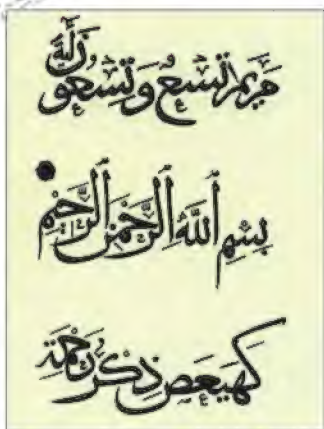 مريم تسع وتسعون آية
بِسْمِ اللَّهِ الرَّحْمٰنِ الرَّحِيمِ
كهيعص ذِكْرُ رَحْمَةِ